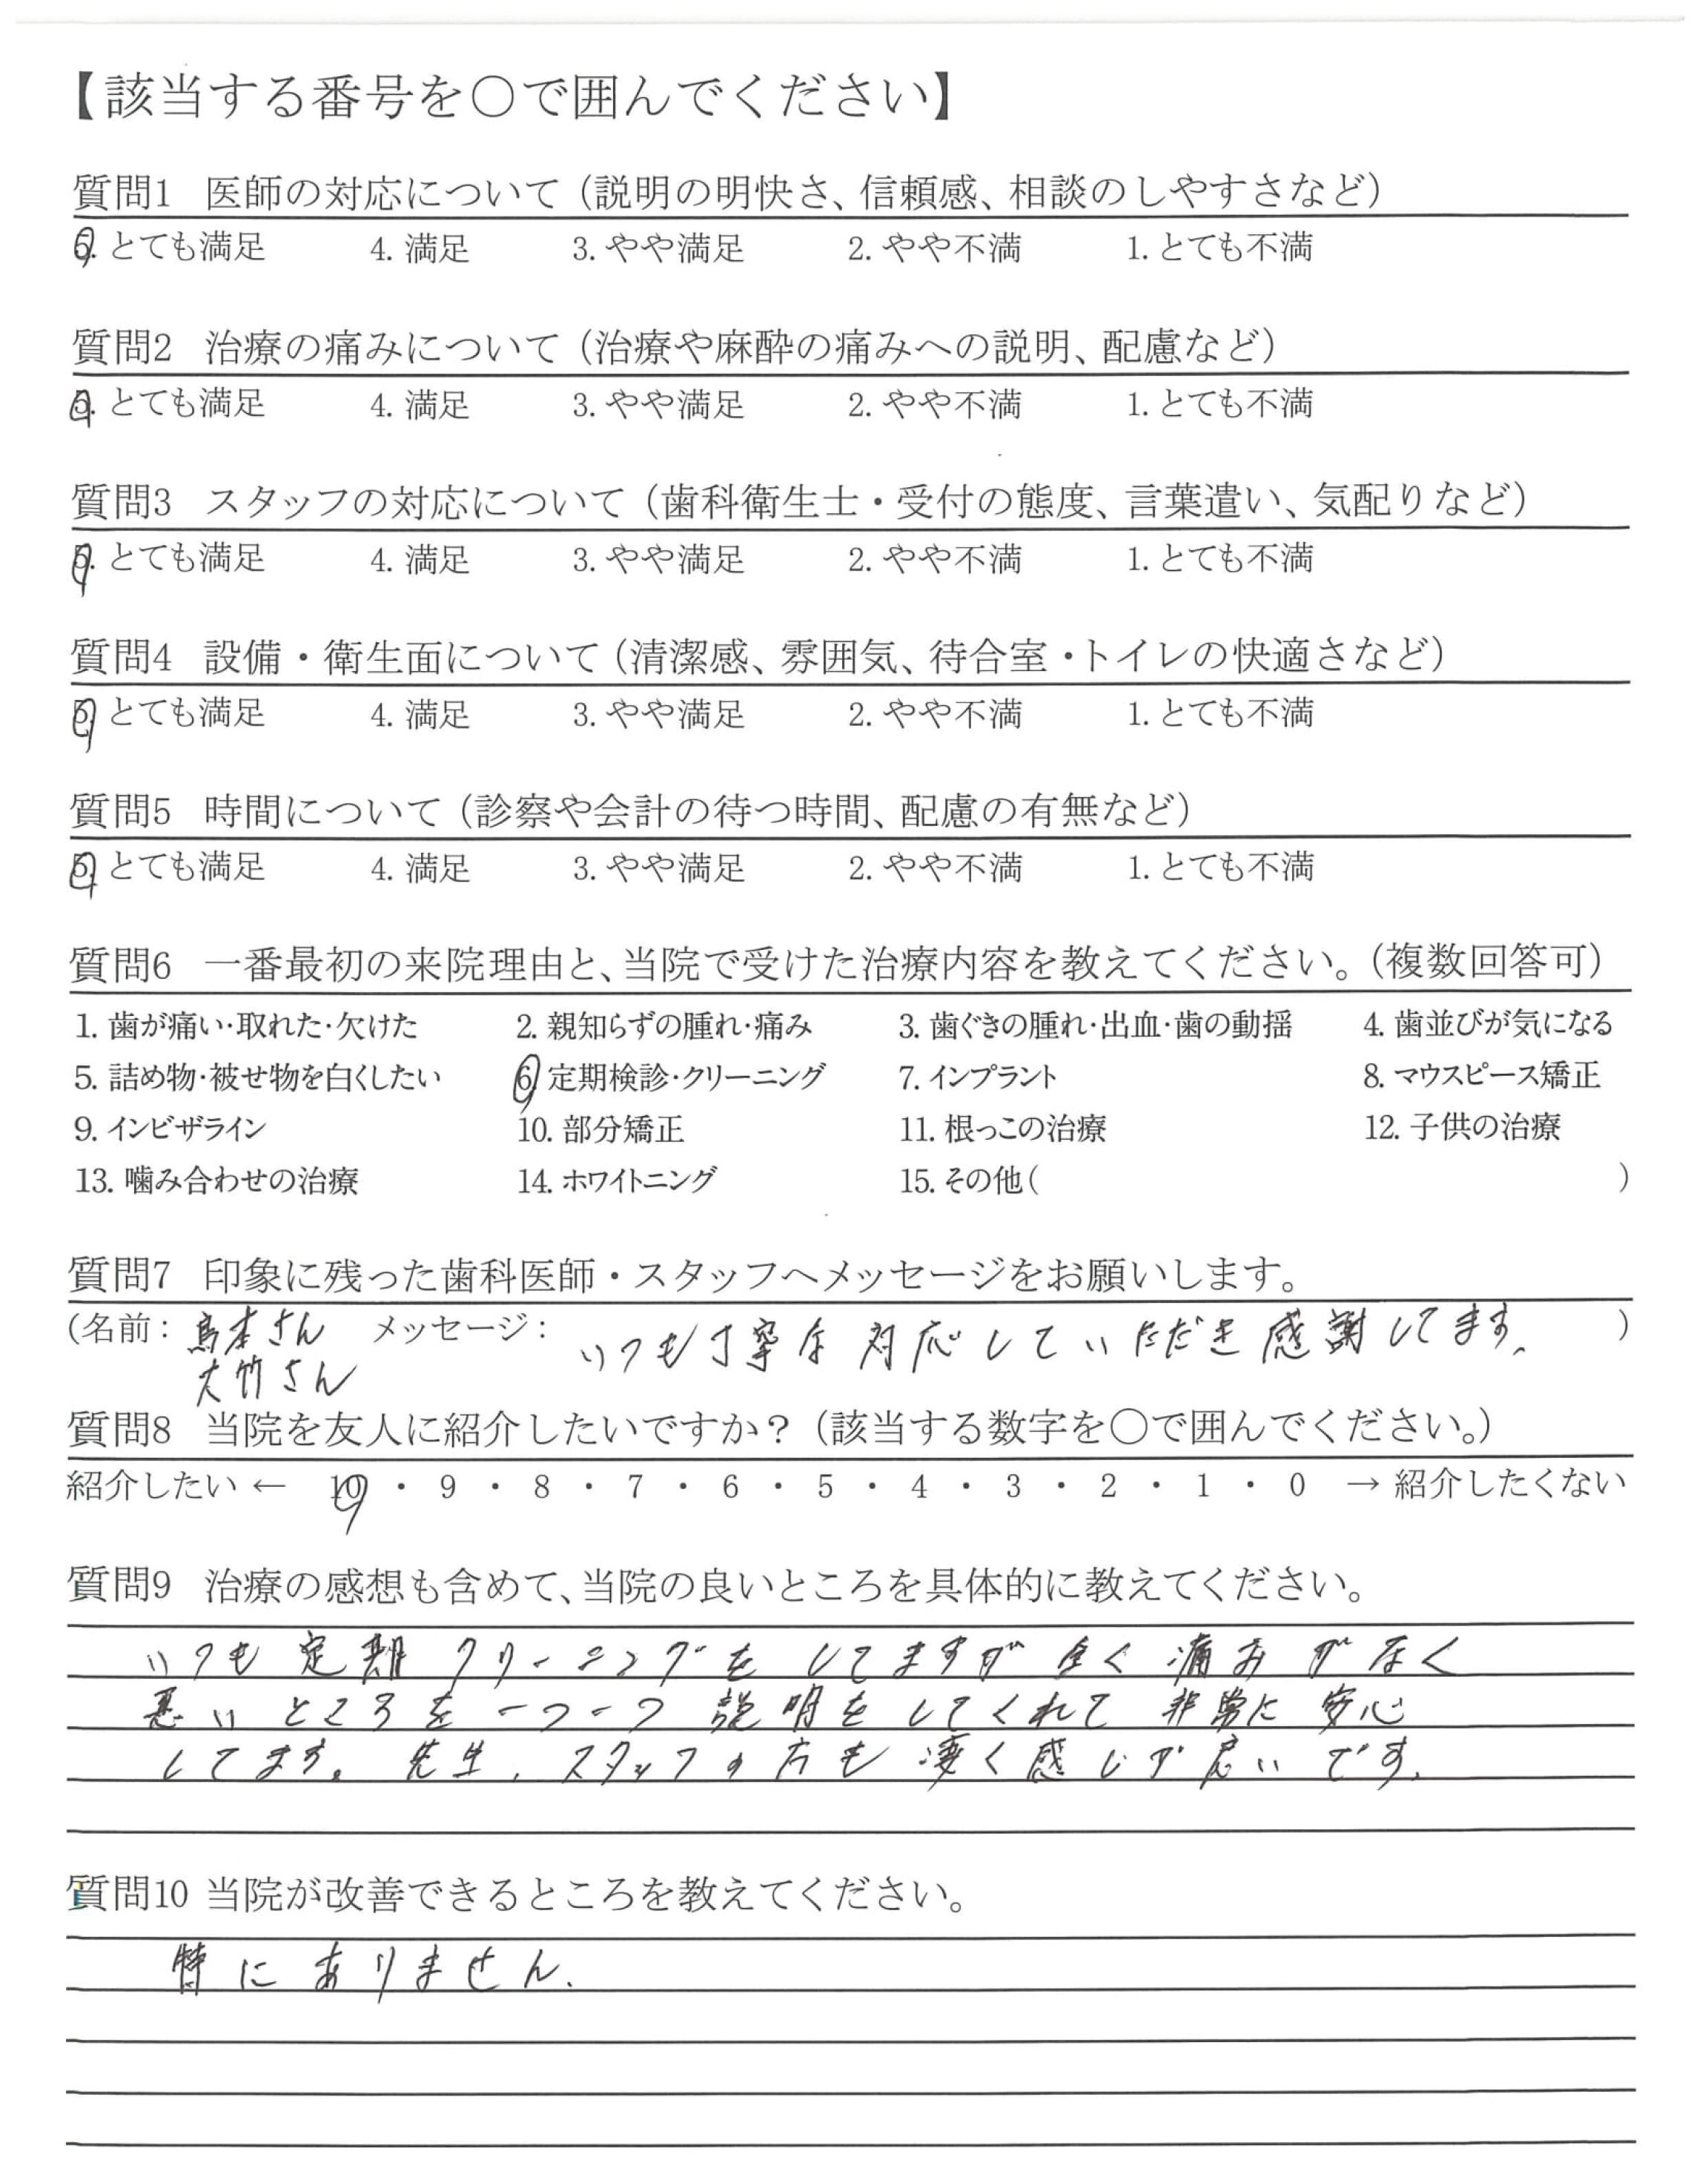 【該当する番号を〇で囲んでください】
質問1 医師の対応について（説明の明快さ、信頼感、相談のしやすさなど）
5. とても満足 4. 満足 3. やや満足 2. やや不満 1. とても不満
質問2 治療の痛みについて（治療や麻酔の痛みへの説明、配慮など）
5. とても満足 4. 満足 3. やや満足 2. やや不満 1. とても不満
質問3 スタッフの対応について（歯科衛生士・受付の態度、言葉遣い、気配りなど）
5. とても満足 4. 満足 3. やや満足 2. やや不満 1. とても不満
質問4 設備・衛生面について（清潔感、雰囲気、待合室・トイレの快適さなど）
5. とても満足 4. 満足 3. やや満足 2. やや不満 1. とても不満
質問5 時間について（診察や会計の待つ時間、配慮の有無など）
5. とても満足 4. 満足 3. やや満足 2. やや不満 1. とても不満
質問6 一番最初の来院理由と、当院で受けた治療内容を教えてください。（複数回答可）
1. 歯が痛い・取れた・欠けた 2. 親知らずの腫れ・痛み 3. 歯ぐきの腫れ・出血・歯の動揺 4. 歯並びが気になる
5. 詰め物・被せ物を白くしたい 6. 定期検診・クリーニング 7. インプラント 8. マウスピース矯正
9. インビザライン 10. 部分矯正 11. 根っこの治療 12. 子供の治療
13. 噛み合わせの治療 14. ホワイトニング 15. その他( )
質問7 印象に残った歯科医師・スタッフへメッセージをお願いします。
(名前： 本さん メッセージ： いつも丁寧な対応していただき感謝してます。 )
大竹さん
質問8 当院を友人に紹介したいですか？（該当する数字を〇で囲んでください。）
紹介したい ← 10 ・ 9 ・ 8 ・ 7 ・ 6 ・ 5 ・ 4 ・ 3 ・ 2 ・ 1 ・ 0 → 紹介したくない
質問9 治療の感想も含めて、当院の良いところを具体的に教えてください。
いつも定期クリーニングをしてますが全く痛みがなく
悪いところを一つ一つ説明をしてくれて非常に安心
してます。先生、スタッフの方も凄く感じが良いです。
質問10 当院が改善できるところを教えてください。
特にありません。